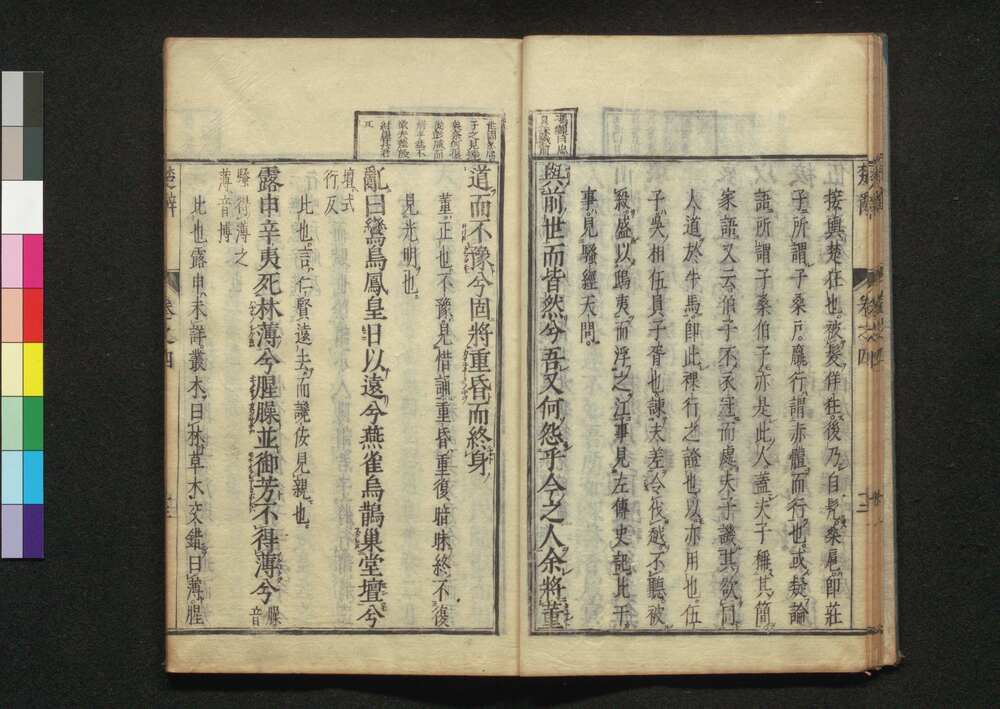 接輿楚狂也被髮佯狂後乃自髠桑扈卽莊
子所謂子桑戶臝行謂赤體而行也或疑論
語所謂子桑伯子亦是此人蓋夫子稱其簡
家語又云伯子不衣冠而處夫子譏其欲同
人道於牛馬卽此裸行之證也以亦用也伍
子吳相伍員子胥也諫夫差令伐越不聽被
殺盛以鴟夷而浮之江事見左傳史記比干
事見騷經天問
與前世而皆然兮吾又何怨乎今之人余將董
道而不豫兮固將重昏而終身
董正也不豫見惜誦重昏重復暗昧終不復
見光明也
亂曰鸞鳥鳳皇日以遠兮燕雀烏鵲巢堂壇兮
壇式
行反
此也言仁賢遠去而讒佞見親也
露申辛夷死林薄兮腥臊並御芳不得薄兮
臊音
騷得薄之
薄音搏
此也露申未詳叢木曰林草木交錯曰薄腥
楚辭
卷之四